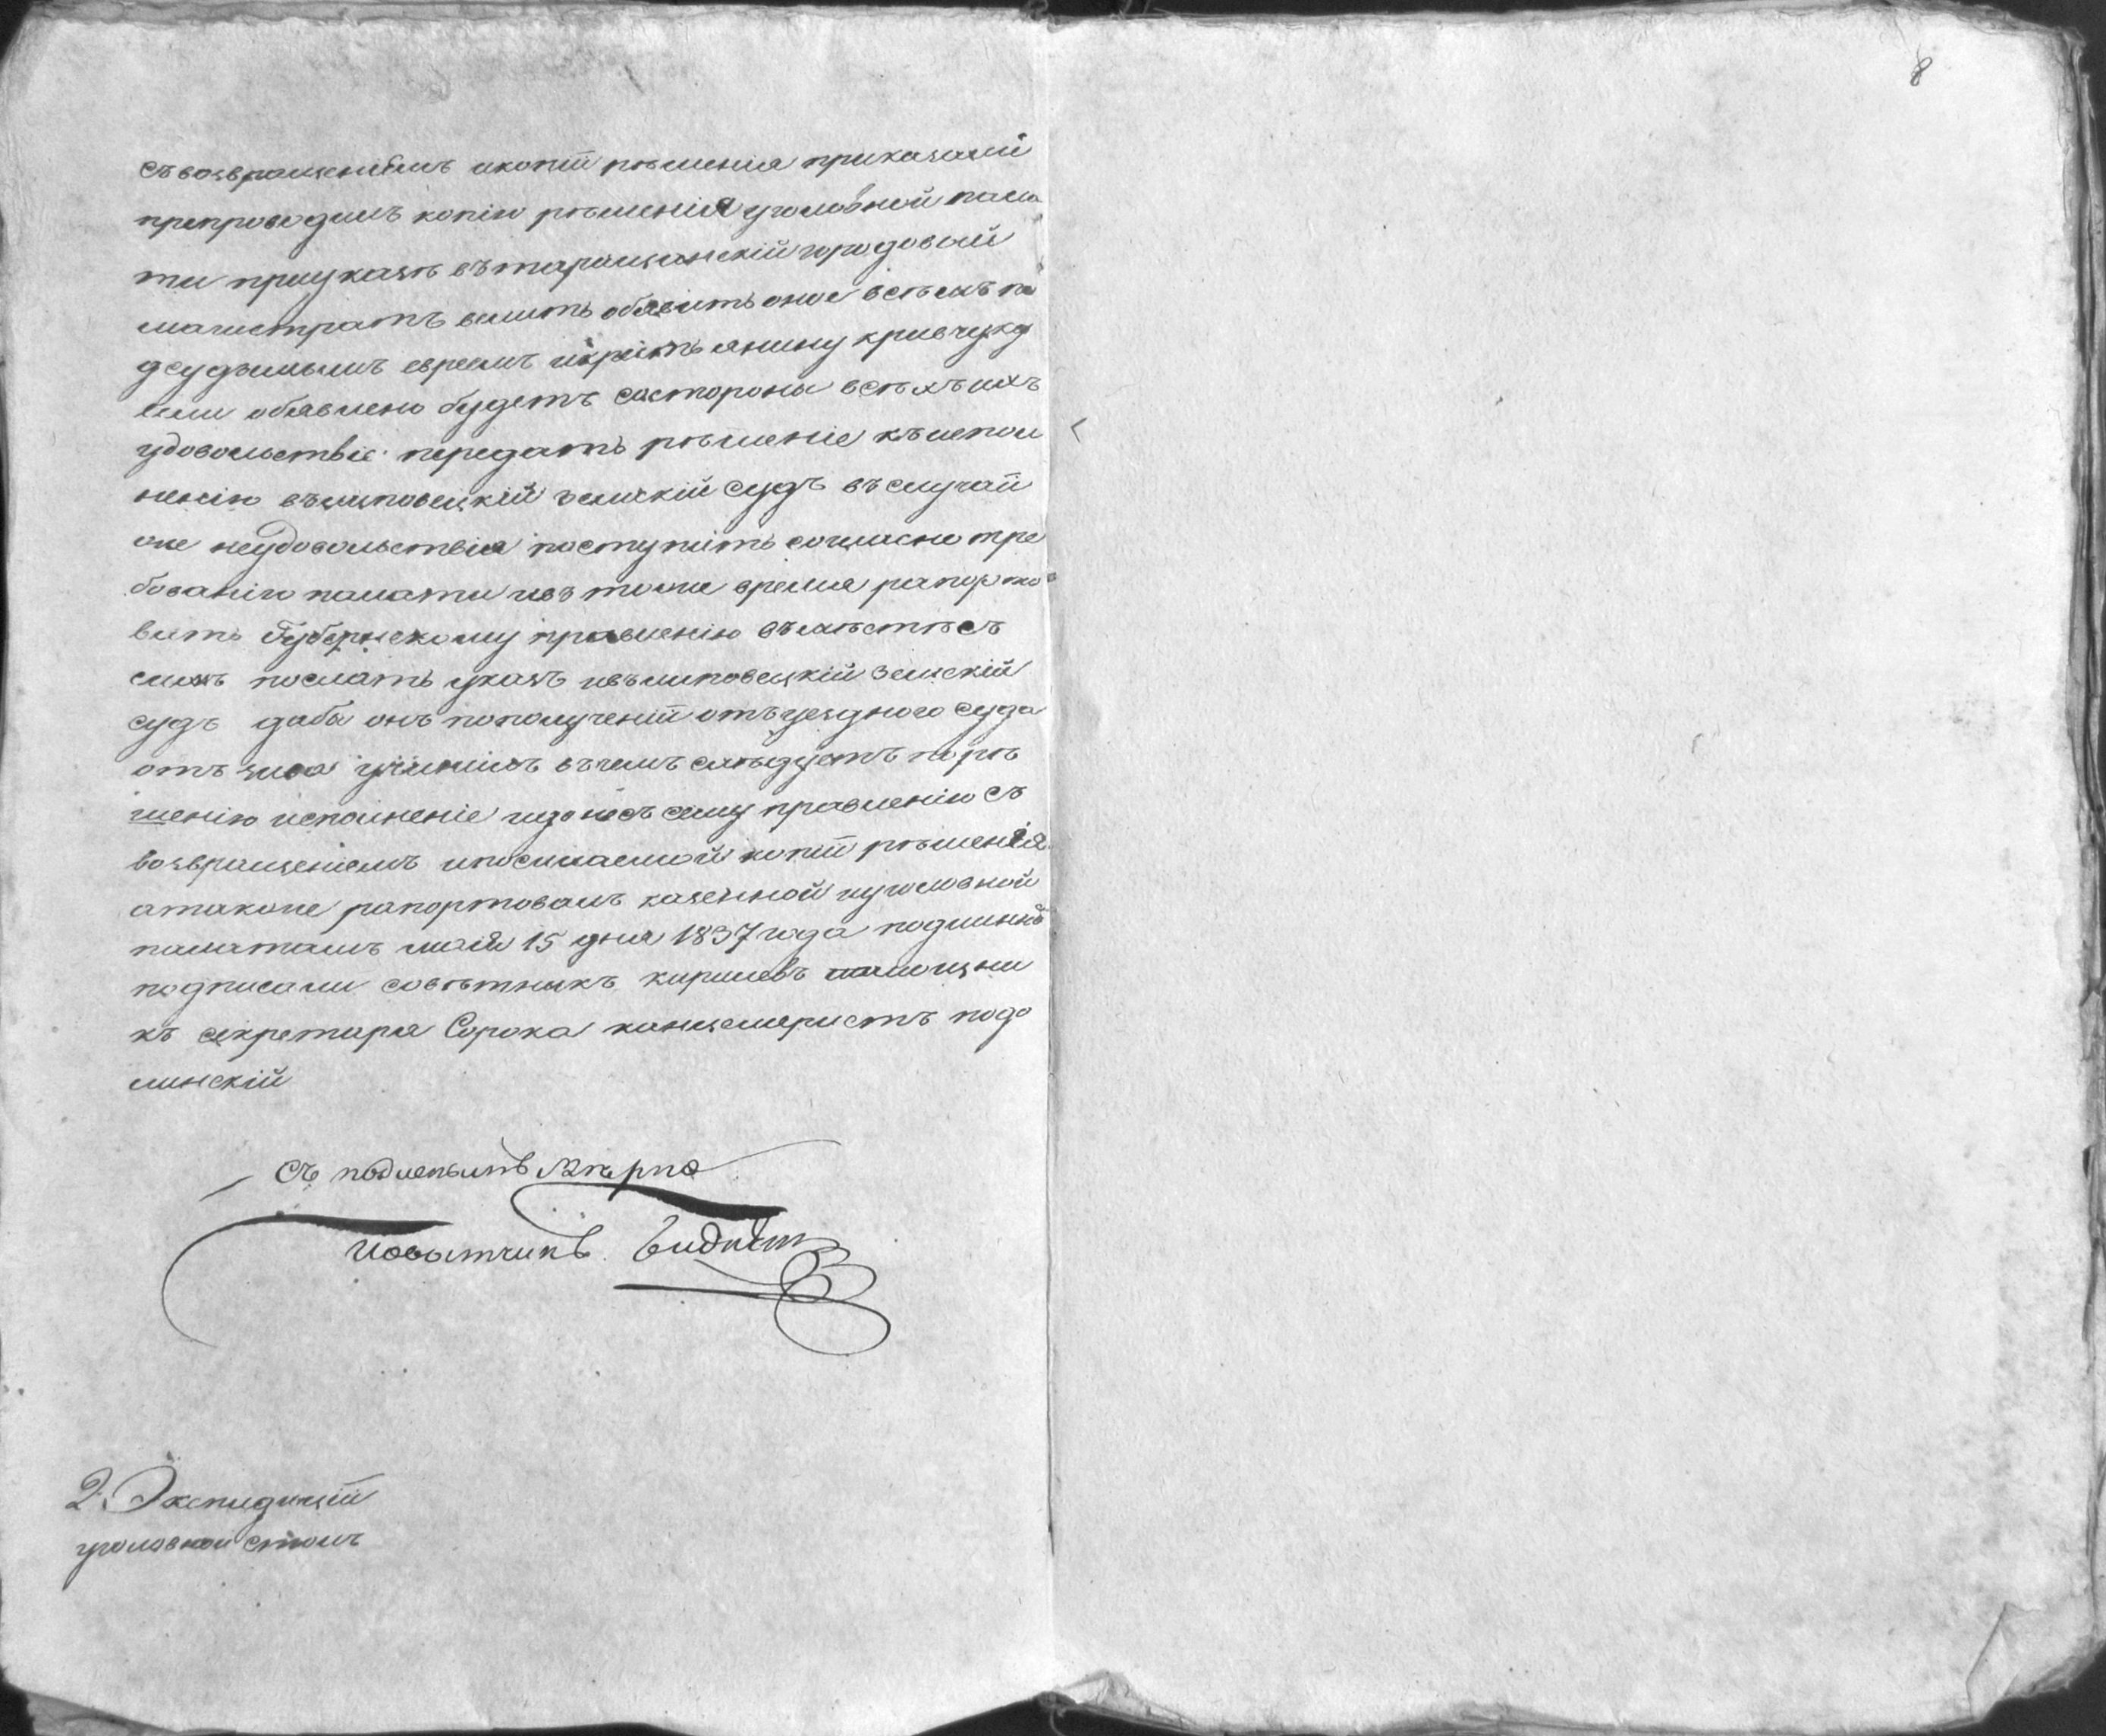 8
съ возвращеніемъ и копіи рѣшенія приказали
препроводимъ копію рѣшенія уголовной пала
ты при указѣ въ таращанскій городовый
магистратъ велить обявить оное всѣмъ по
дсудимымъ евреемъ и крѣстьянину кривчуку
если обявлено будетъ состороны всѣхъ ихъ
удовольствіе передать рѣшеніе къ испол
ненію въ липовецкій земскій судъ въ случаи
оже неудовольствія поступить согласно тре
бованію палаты и въ тоже время рапорто
вать Губернскому правленію вмѣстѣ съ
симъ послать указъ и въ липовецкій Земскій
судъ дабы онъ по полученіи отъ уезднаго суда
отъ учинилъ въ чемъ слѣдуетъ по рѣ
шенію исполненіе и донесъ сему правленію съ
возвращеніемъ и посилаемой копіи рѣшенія
атакоже рапортовалъ казенной и уголовной
палатамъ маія 15 дня 1837 года подлинно
подписали совѣтникъ кирилевъ помощни
къ секретаря Сорока канцеляристъ подо
линскій
Съ подленымъ вѣрно
Повытчикъ
2. Экспедиціи
уголовной столъ